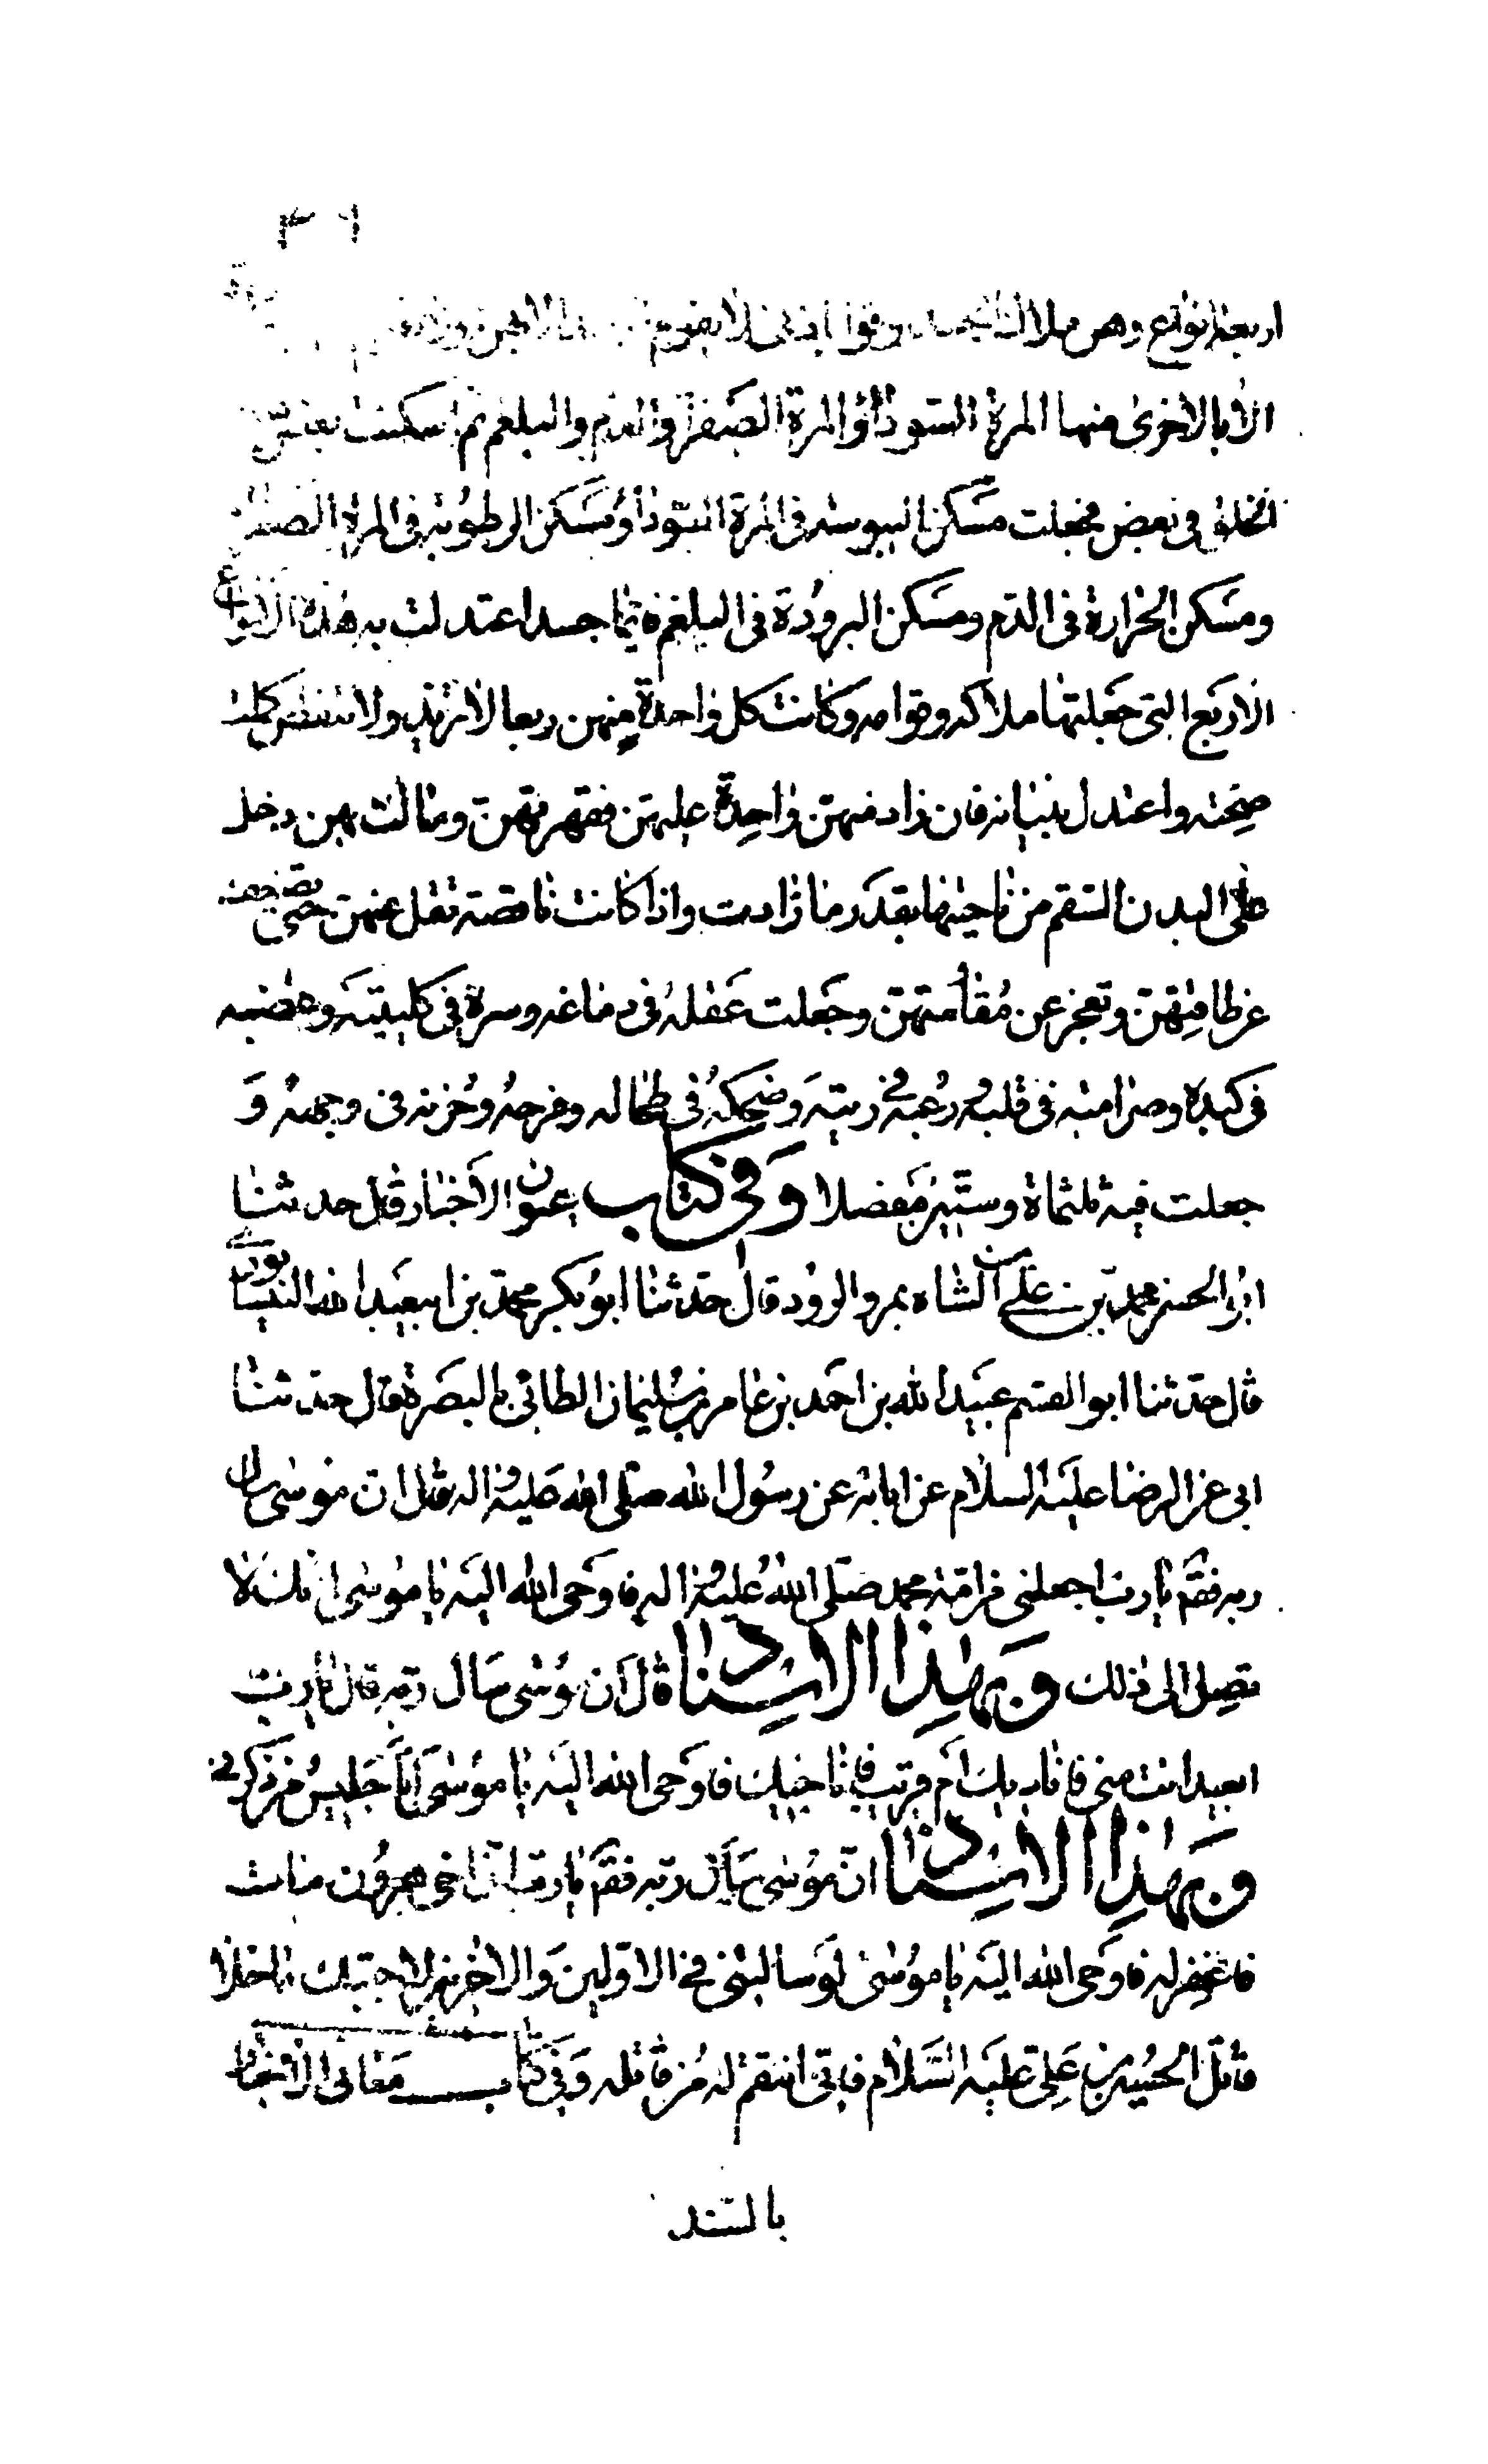 اربعة انواع وهن ملاك الجسد وقوامه لا يقوم الجسد الا بهن ولا
الا بالاخرى منها المرة السوداء والمرة الصفراء والدم والبلغم ثم اسكنت بعض
الخلق فى بعض فجعلت مسكن اليبوسة فى المرة السوداء ومسكن الرطوبة فى المرة الصفراء
ومسكن الحرارة فى الدم ومسكن البرودة فى البلغم فايما جسد اعتدلت به هذه الانواع
الاربع التى جعلتها ملاكه وقوامه وكانت كل واحدة منهن ربعا لا تزيد ولا تنقص كملت
صحته واعتدل بنيانه فان زاد منهن واحدة عليهن فقهرتهن ومالت بهن دخل
على البدن السقم من ناحيتها بقدر ما زادت واذا كانت ناقصة تقل عنهن حتى تضعف
عن طاقتهن وتعجز عن مقامتهن وجعلت عقله فى دماغه وسره فى كليتيه وغضبه
فى كبده وصرامته فى قلبه ورعبه فى ريته وضحكه فى طحاله وفرحه وحزنه فى وجهه و
جعلت فيه ثلثماة وستين مفصلا وفى كتاب عيون الاخبار قال حدثنا
ابو الحسن محمد بن على بن الشاه بمرو الرود قال حدثنا ابو بكر محمد بن عبد الله النيسابورى
قال حدثنا ابو القسم عبيد الله بن احمد بن عامر بن سليمان الطائى بالبصرة قال حدثنا
ابى عن الرضا عليه السلام عن ابائه عن رسول الله صلى الله عليه واله قال ان موسى سال
ربه فقال يا رب اجعلنى من امة محمد صلى الله عليه واله فاوحى الله اليه يا موسى انك لا
تصل الى ذلك وبهذا الاسناد قال ان موسى سال ربه قال يا رب
ابعيد انت منى فاناديك ام قريب فاناجيك فاوحى الله اليه يا موسى انا جليس من ذكرنى
وبهذا الاسناد ان موسى سال ربه فقال يا رب ان اخى هرون مات
فاغفر له فاوحى الله اليه يا موسى لو سالتنى فى الاولين والاخرين لاجبتك ما خلا
قاتل الحسين بن على عليه السلام فانى انتقم له من قاتله وفى كتاب معانى الاخبار
بالسند